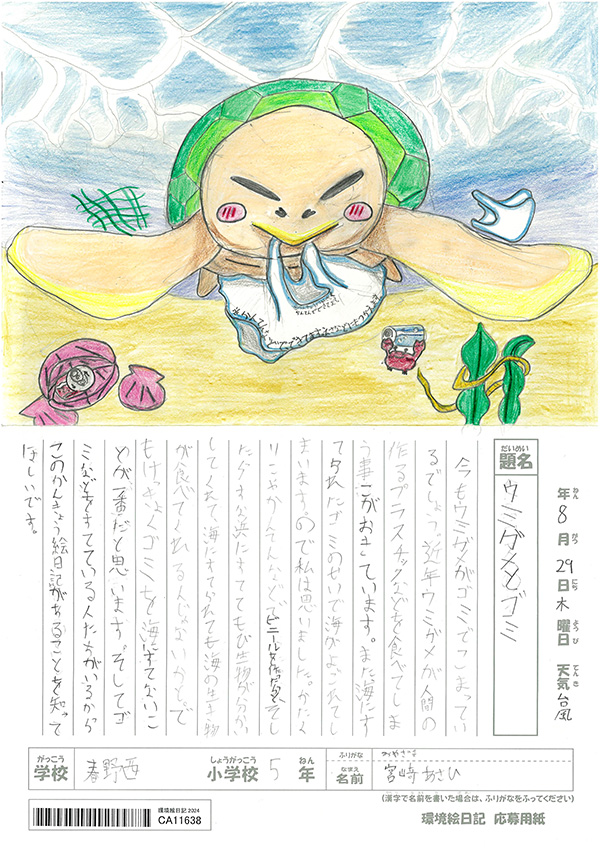 年8月29日木曜日 天気台風
ねん がつ にち ようび てんき
だいめい
題名 ウミガメとゴミ
今もウミガメがゴミでこまってい
るでしょう。近年ウミガメが人間の
作るプラスチックなどを食べてしま
う事こがおきています。また海にす
てられたゴミのせいで海がよごれてし
まいます。ので私は思いました。かたく
りこやかんてんなどでビニール そし
たらすな浜にすててもび生物が分かい
してくれて海にすてられても海の生き物
が食べてくれるんじゃないかとで
もけっきょくゴミを海にすてないこ
とが一番だと思います。そしてゴ
ミなどをすてている人たちがいるから
このかんきょう絵日記があることを知って
ほしいです。
がっこう しょうがっこう ねん ふりがな みやざきあさひ
学校 春野西 小学校 5 年 なまえ 名前 宮崎あさひ
(漢字で名前を書いた場合は、ふりがなをふってください)
環境絵日記 2024
CA11638
環境絵日記 応募用紙